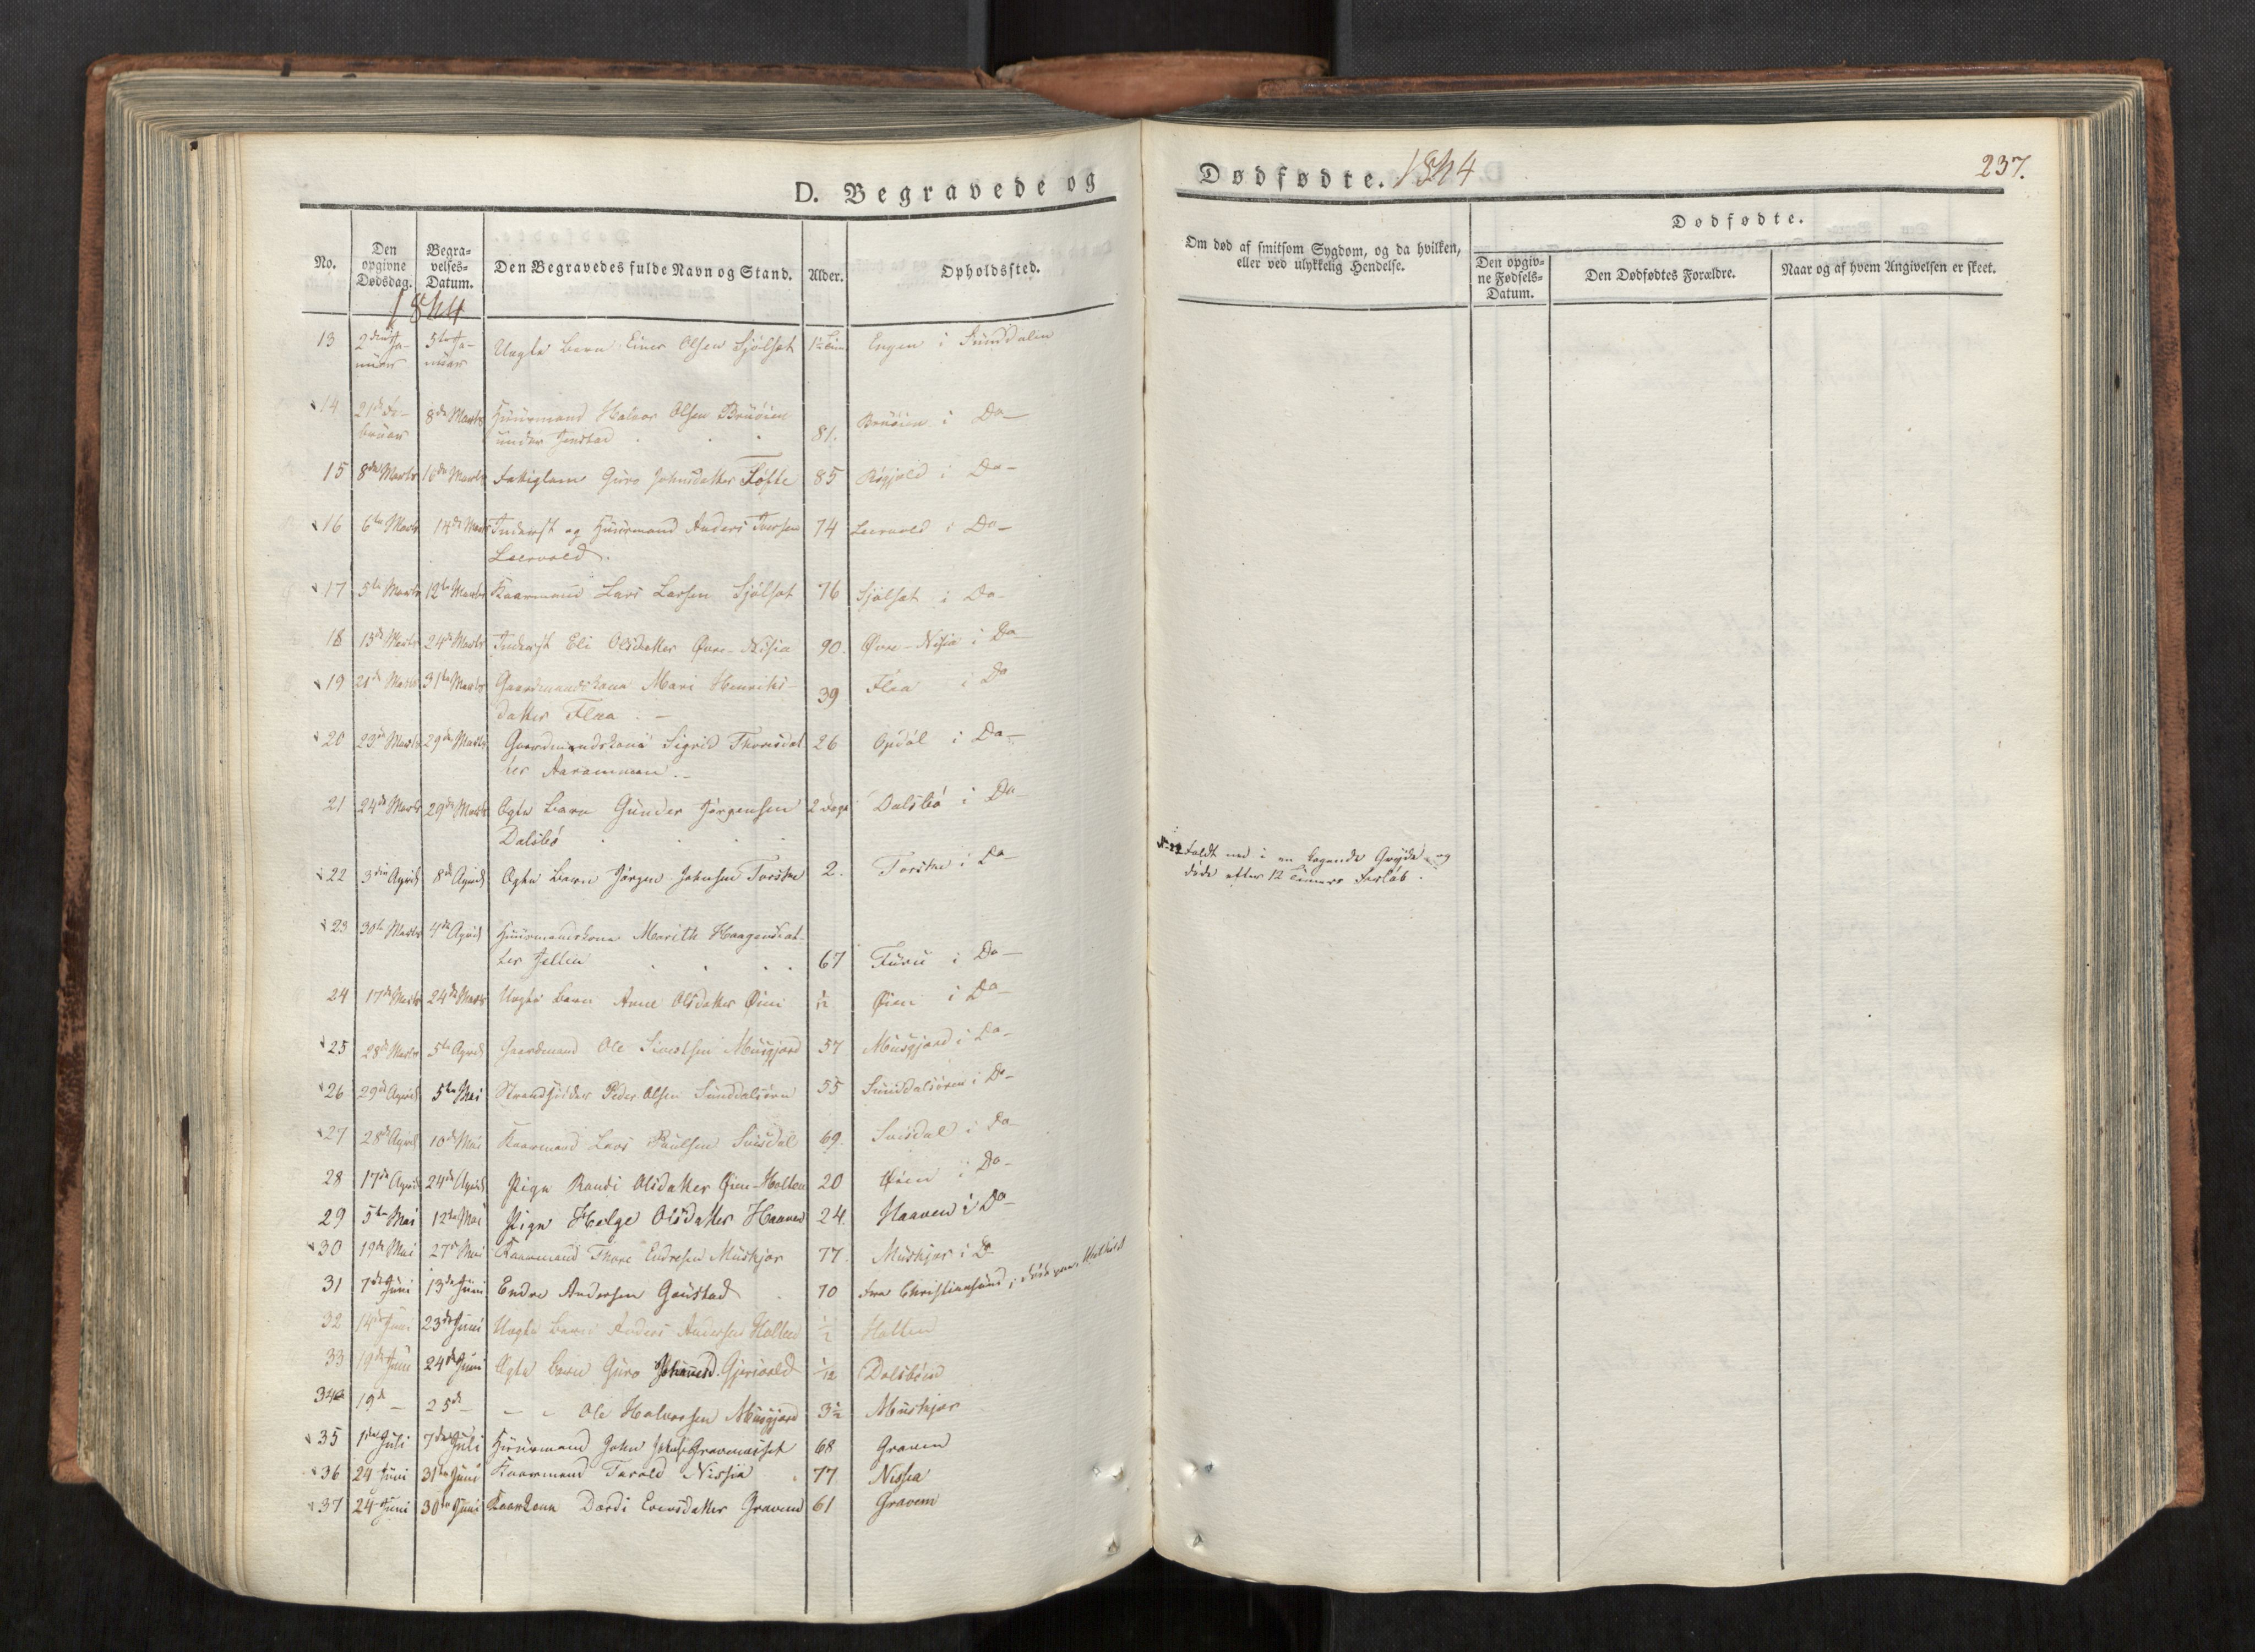 D. Begravede og
No.
Den opgivne Dødsdag.
Begra-velses-Datum.
Den Begravedes fulde Navn og Stand.
Alder.
Opholdssted.
1844
13 2den Ja- 5te Ja- Uægte Barn Einer Olsen Sjölset Engen i Sunddalen
nuar nuar
14 21de Fe- 8de Marts Huusmand Halvor Olsen Bruøien Bruøien i Do
bruar under 81.
15 8de Marts 16de Marts Fattiglem Guro Johnsdatter Tøfte 85 i Do
16 6te Marts 14de Marts Inderst og Huusmand Anders Iversen 74 Leervold i Do
Leervold.
17 5te Marts 12te Marts Kaarmand Lars Larsen Sjölset 76 Sjölset i Do
18 13de Marts 24de Marts Inderst Eli Olsdatter Øvre-Nisia 90. Øvre-Nisia i Do
19 21de Marts 31te Marts Gaardmandskone Mari Henriks- 39 Flaa i Do
datter Flaa
20 23de Marts 29de Marts Gaardmandskone Sigrid Thoresdat 26 Opdöl i Do
ter
21 24de Marts 29de Marts Ægte Barn Gunder Jörgensen 2 Dage Dalsbö i Do
Dalsbö
22 3die April 8de April Ægte Barn Jörgen Johnsen Torske 2. Torske i Do
23 30te Marts 4de April Huusmandskone Marith Haagensdat-
ter 67 Furu i Do
24 17de Marts 24de Marts Uægte Barn Anne Olsdatter Øien 1/12 Øien i Do
25 28de Marts 5te April Gaardmand Ole Sivertsen Musgjerd 57 Musgjerd i Do
26 29de April 5te Mai Strandsidder Peder Olsen Sunddalsøren 55 Sunddalsøren i Do
27 28de April 10de Mai Kaarmand Lars Paulsen Suisdal 69. Suisdal i Do
28 17de April 24de April Pige Randi Olsdatter Øien-Holten 20 Øien i Do
29 5te Mai 12te Mai Pige Helge Olsdatter Haaven 24. Haaven i Do
30 19de Mai 27de Mai Kaarmand Thore Endresen Muskjær 77. Muskjær i Do
31 7de Juni 13de Juni Endre Andersen Gaustad 70 fra Christiansund, døde paa
32 14de Juni 23de Juni Uægte Barn Anders Andersen Holten 1/2 Holten
33 19de Juni 24de Juni Ægte Barn Guro Johannesd. 1/12 Dalsbøen
34 19de 25de - - Ole Halvorsen Musgjerd 3 1/2 Muskjær
35 1ste Juli 7de Juli Huusmand John 68 Graven
36 24 Juni 31te Juni Kaarmand Tarald Nissia 77 Nissia
37 24 Juni 30te Juni Kaarkone Dordi Eversdatter Gravem 61 Gravem
Dødfødte. 1844
237.
Om død af smitsom Sygdom, og da hvilken,
eller ved ulykkelig Hendelse.
Dødfødte.
Den opgiv-ne Fødsels-Datum.
Den Dødfødtes Forældre.
Naar og af hvem Angivelsen er skeet.
N-22 faldt ned i en kogende Gryde og
døde efter 12 Timers Forløb.